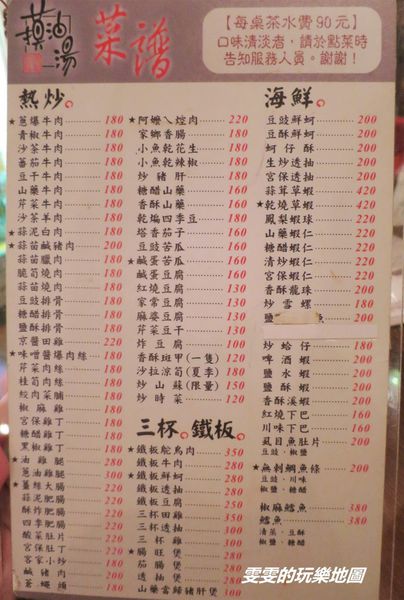 蘑油湯
菜譜
【每桌茶水費90元】
口味清淡者，請於點菜時
告知服務人員。謝謝！
熱炒
★蔥爆牛肉 180
青椒牛肉 180
沙茶牛肉 180
蕃茄牛肉 180
豆干牛肉 180
山藥牛肉 180
芹菜牛肉 180
沙茶羊肉 180
★蒜泥白肉 180
★蒜苗鹹豬肉 200
蒜苗臘肉 180
脆筍燒肉 180
蒜苗肥腸 180
豆豉排骨 180
糖醋排骨 180
鹽酥排骨 180
京醬田雞 220
★味噌醬爆肉絲 180
芹菜肉絲 180
桂筍肉絲 180
絞肉菜脯 180
椒麻雞 180
宮保雞丁 180
糖醋雞丁 180
黑椒雞丁 180
★油雞腿 280
蔥油雞腿 300
★薑絲大腸 220
蒜泥肥腸 220
酥炸肥腸 220
四季肥腸 220
酸菜肚片 220
宮保肚丁 220
客家小炒 180
鹹豬肉 200
蒼蠅頭 180
★阿嬤ㄟ焢肉 220
家鄉香腸 180
小魚乾花生 180
小魚乾辣椒 180
炒豬肝 180
糖醋山藥 180
香酥山藥 180
乾煸四季豆 180
塔香茄子 160
豆豉苦瓜 160
★鹹蛋苦瓜 160
鹹蛋豆腐 160
紅燒豆腐 130
家常豆腐 130
麻婆豆腐 130
芹菜豆干 130
炸豆腐 100
香酥斑甲(一隻) 120
沙拉涼筍(夏季) 180
炒山蘇(限量) 150
炒時菜 120
三杯、鐵板
★鐵板鴕鳥肉 350
鐵板牛肉 280
★鐵板鮮蚵 280
鐵板透抽 280
鐵板豆腐 250
三杯田雞 350
三杯透抽 350
三杯雞 280
★腸旺煲 280
茄腸煲 280
透抽煲 280
山藥當歸豬肝煲 280
海鮮
豆豉鮮蚵 200
豆酥鮮蚵 200
蚵仔酥 200
生炒透抽 200
宮保透抽 200
蒜茸草蝦 420
★乾燒草蝦 420
鳳梨蝦球 220
山藥蝦仁 220
糖醋蝦仁 220
清炒蝦仁 220
宮保蝦仁 220
香酥龍珠 200
炒雪螺 180
鹽
炒蛤仔 180
啤酒蝦 200
鹽水蝦 200
鹽酥蝦 200
香酥溪蝦 200
紅燒下巴 160
川味下巴 160
虱目魚肚片 200
豆豉、椒鹽
★無刺鯛魚條 200
豆豉、川味
椒鹽、糖醋
椒麻鱈魚 380
鱈魚 380
清蒸、豆酥
椒鹽、糖醋
雯雯的玩樂地圖